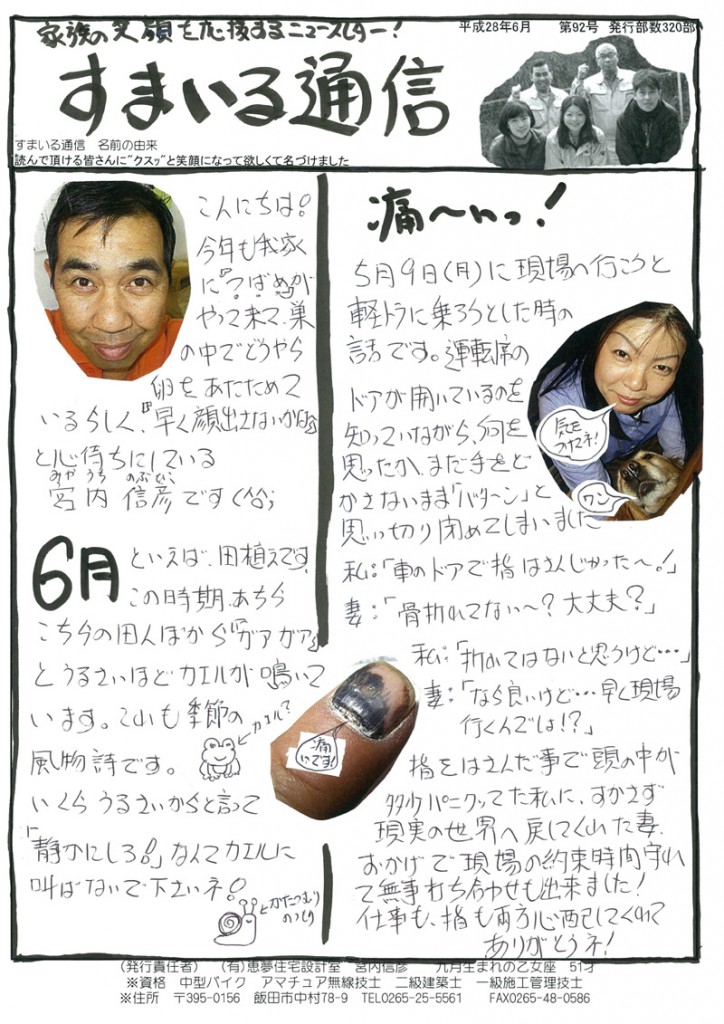 家族の笑顔を応援するニュースレター!
平成28年6月 第92号 発行部数320部
すまいる通信
すまいる通信 名前の由来
読んで頂ける皆さんに"クスッ"と笑顔になって欲しくて名づけました
こんにちは。
今年も我家
に『つばめ』が
やって来て、巣
の中でどうやら
卵をあたためて
いるらしく、『早く顔出さないかな』
と心待ちにしている
みやうち のぶひこ
宮内 信彦です(^^;
6月
といえば、田植えです。
この時期、あちら
こちらの田んぼから『ガアガア』
とうるさいほどカエルが鳴いて
います。これも季節の
風物詩です。
カエル?
いくらうるさいからと言って
「静かにしろ!」なんてカエルに
叫ばないで下さいネ!
かたつむり
のつもり
痛〜いっ!
5月9日(月)に現場へ行こうと
軽トラに乗ろうとした時の
話です。運転席の
ドアが開いているのを
知っていながら、何を
思ったか、まだ手をど
かさないまま「バターン」と
思い切り閉めてしまいました
気を
つけてネ!
ワン
私:「車のドアで指はさんじかった〜!」
妻:「骨折れてない〜?大丈夫?」
私:「折れてはないと思うけど…」
妻:「なら良いけど…早く現場
行くんでは!?」
痛
いです!
指をはさんだ事で頭の中が
多少パニクッてた私に、すかさず
現実の世界へ戻してくれた妻。
おかげで現場の約束時間守れ
て無事打ち合わせも出来ました!
仕事も、指も両方心配してくれて
ありがとうネ!
(発行責任者) (有)恵夢住宅設計室 宮内信彦 九月生まれの乙女座 51才
※資格 中型バイク アマチュア無線技士 二級建築士 一級施工管理技士
※住所 〒395-0156 飯田市中村78-9 TEL0265-25-5561 FAX0265-48-0586